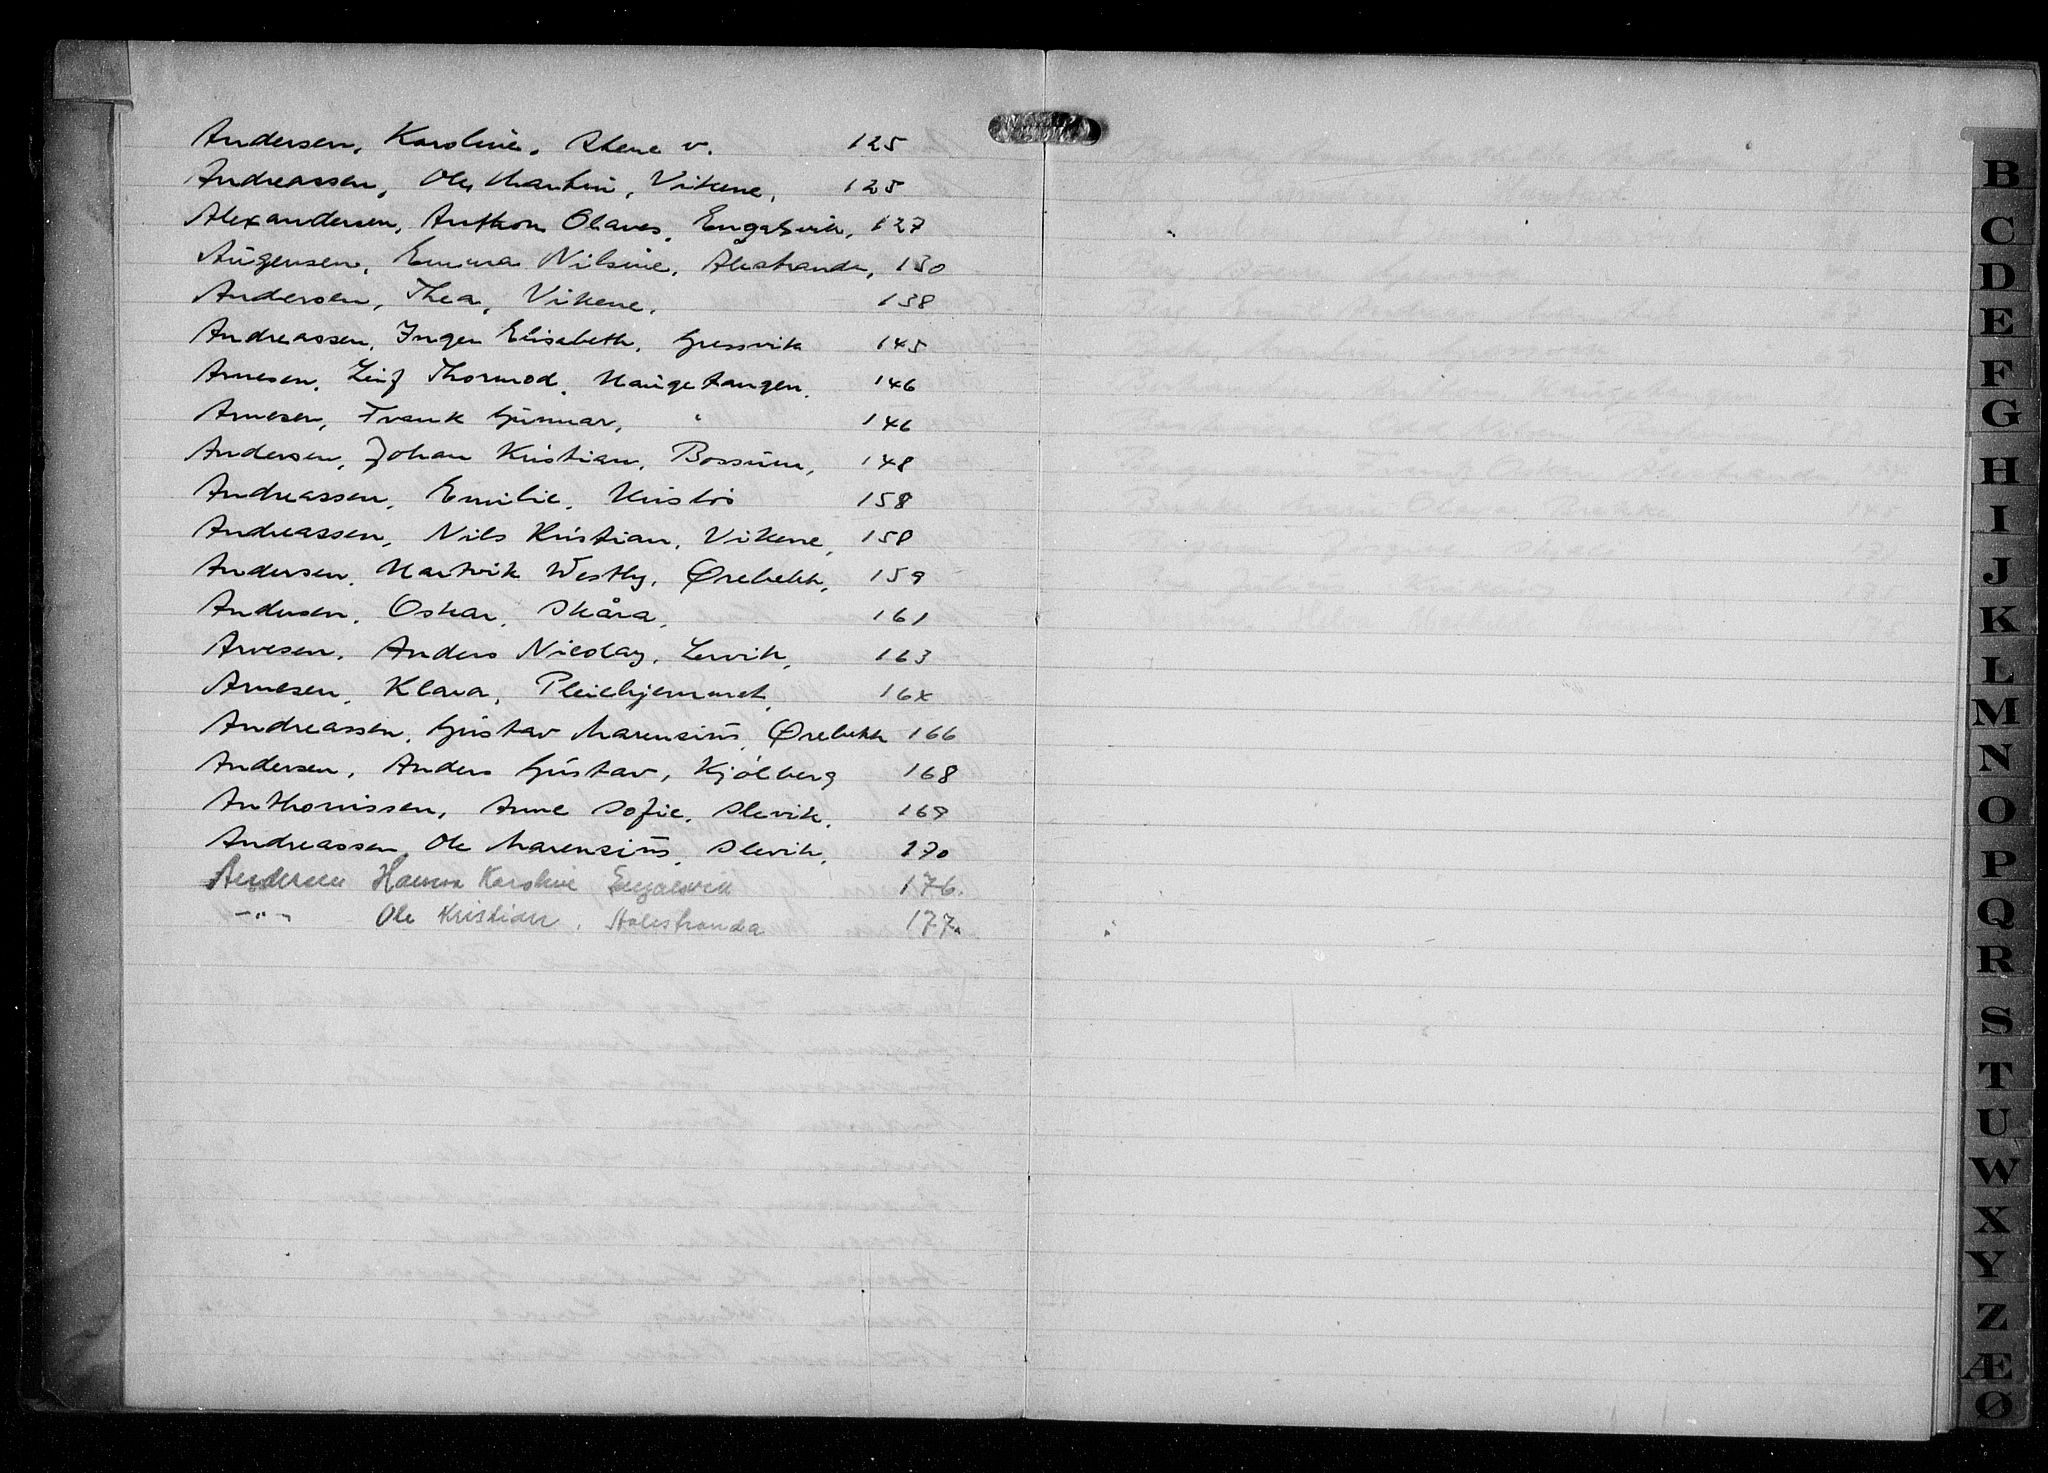 Andersen, Karoline, Stene v. 125
Andreassen, Ole Martin, Vikene, 125
Alexandersen, Anthon Olaves, Engalsvik, 127
Augensen, Emma Nilsine, Ålestranda, 130
Andersen, Thea, Vikene, 138
Andreassen, Inger Elisabeth, Gressvik 145
Arnesen, Leif Thormod, Haugetangen, 146
Arnesen, Frank Gunnar, " 146
Andersen, Johan Kristian, Bossum, 148
Andreassen, Emilie, Huslös 158
Andreassen, Nils Kristian, Vikene, 158
Andersen, Hartvik Westby, Ørebekk, 159
Andersen, Oskar, Skåra, 161
Arvesen, Anders Nicolay, Lervik, 163
Arnesen, Klara, Pleiehjemmet, 164
Andreassen, Gustav Marensius, Ørebekk 166
Andersen, Anders Gustav, Kjölberg 168
Anthonissen, Anne Sofie, Slevik, 169
Andreassen, Ole Marensius, Slevik, 170
Andersen Hanna Karoline Engalsvik 176.
-"- Ole Kristian, Aalestranda 177.
B
C
D
E
F
G
H
I
J
K
L
M
N
O
P
Q
R
S
T
U
W
X
Y
Z
Æ
Ø